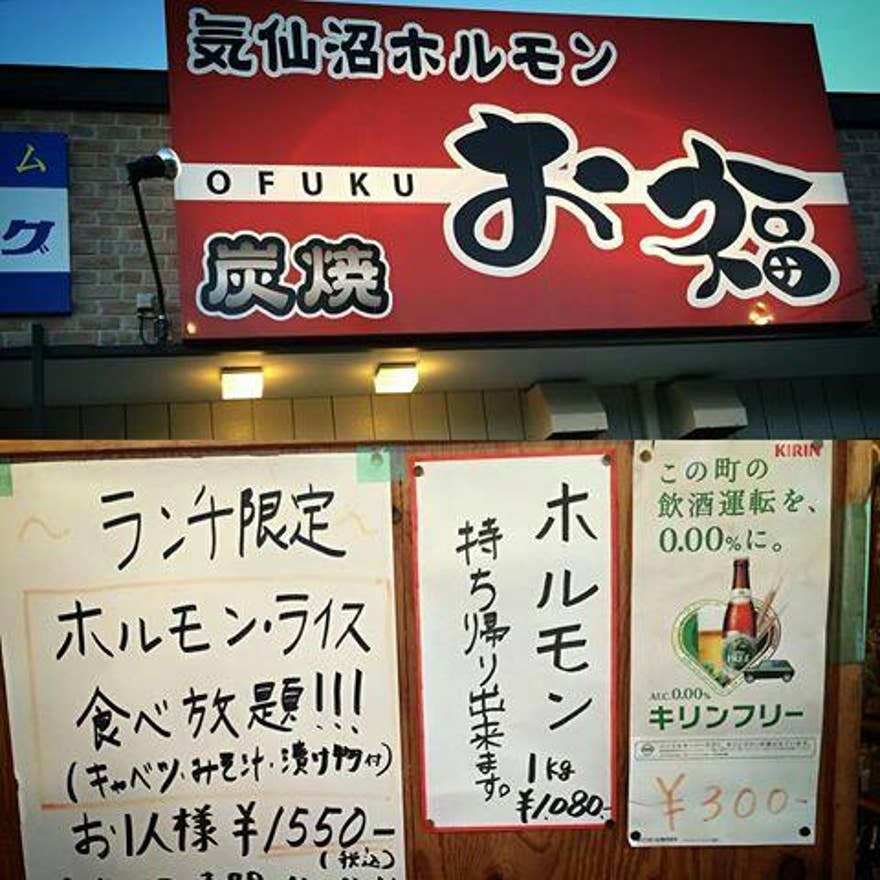 気仙沼ホルモン
OFUKU
お福
炭焼
ム
グ
ランチ限定
ホルモン・ライス
食べ放題!!!
(キャベツ、みそ汁・漬け物付)
お1人様 ¥1550-
(税込)
ホルモン
持ち帰り出来ます。
1kg
¥1,080-
KIRIN
この町の
飲酒運転を、
0.00%に。
ALC.0.00%
キリンフリー
¥300-